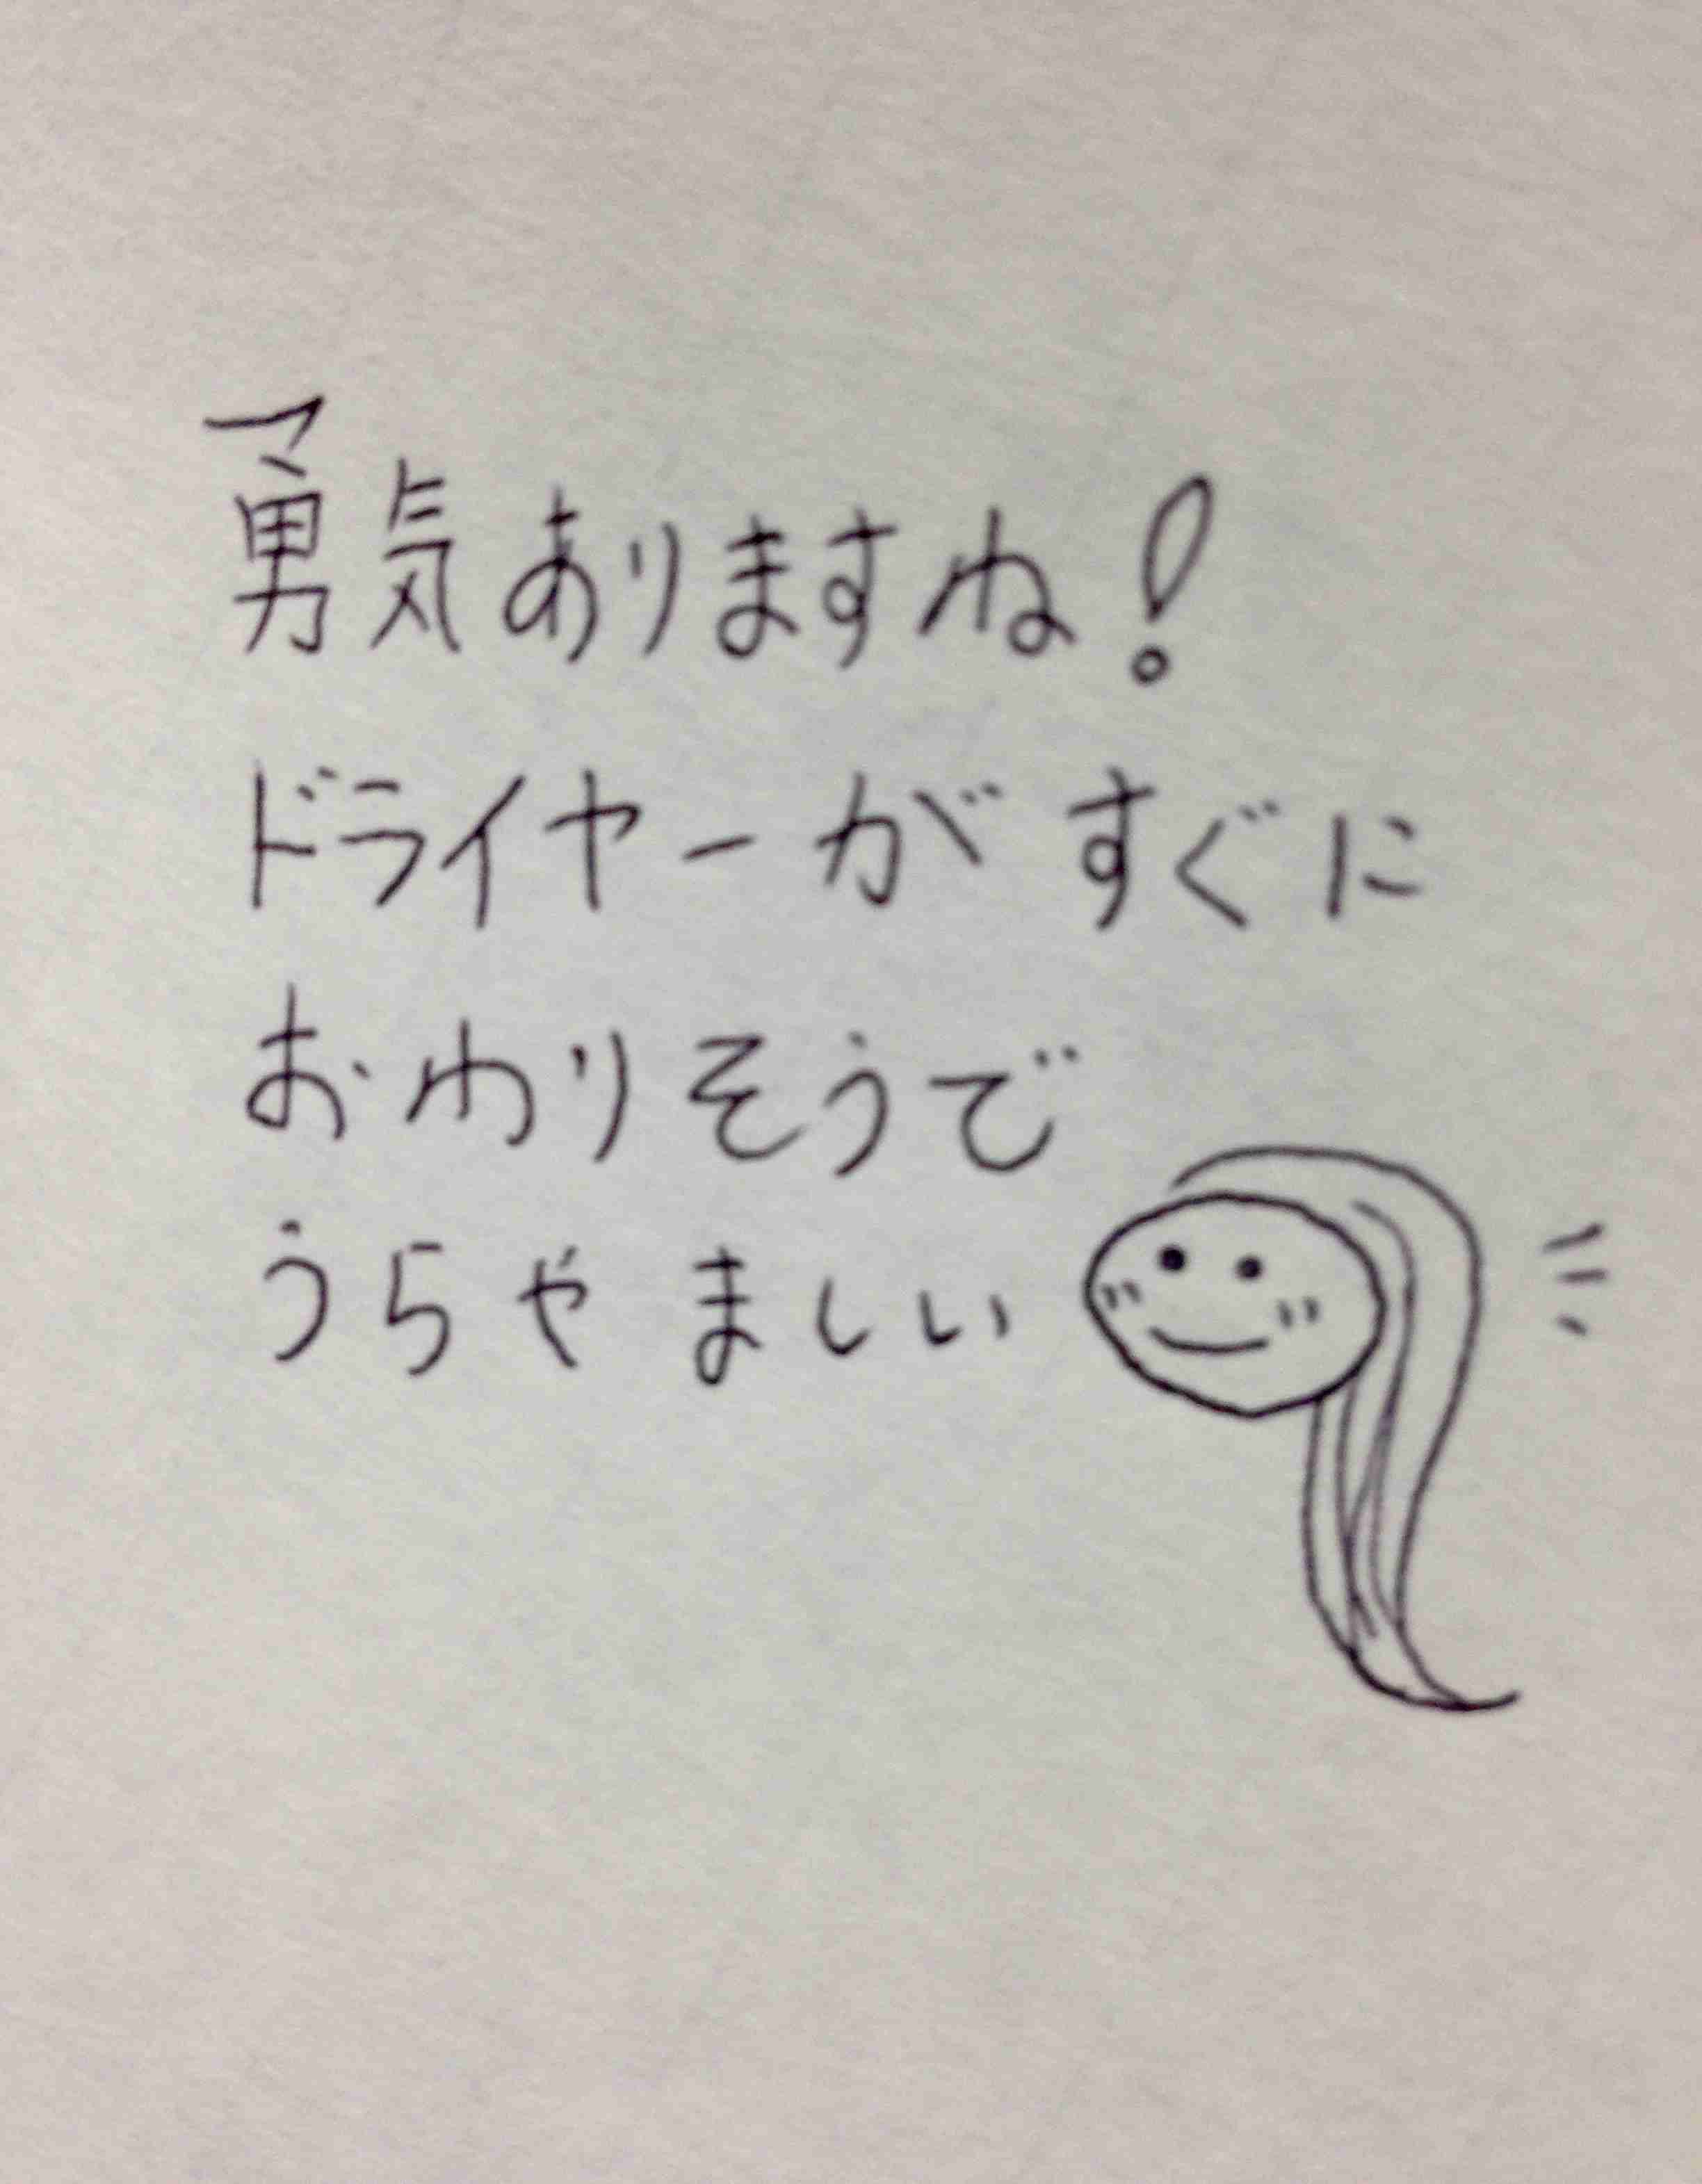 勇気ありますね!
ドライヤーがすぐに
おわりそうで
うらやましい